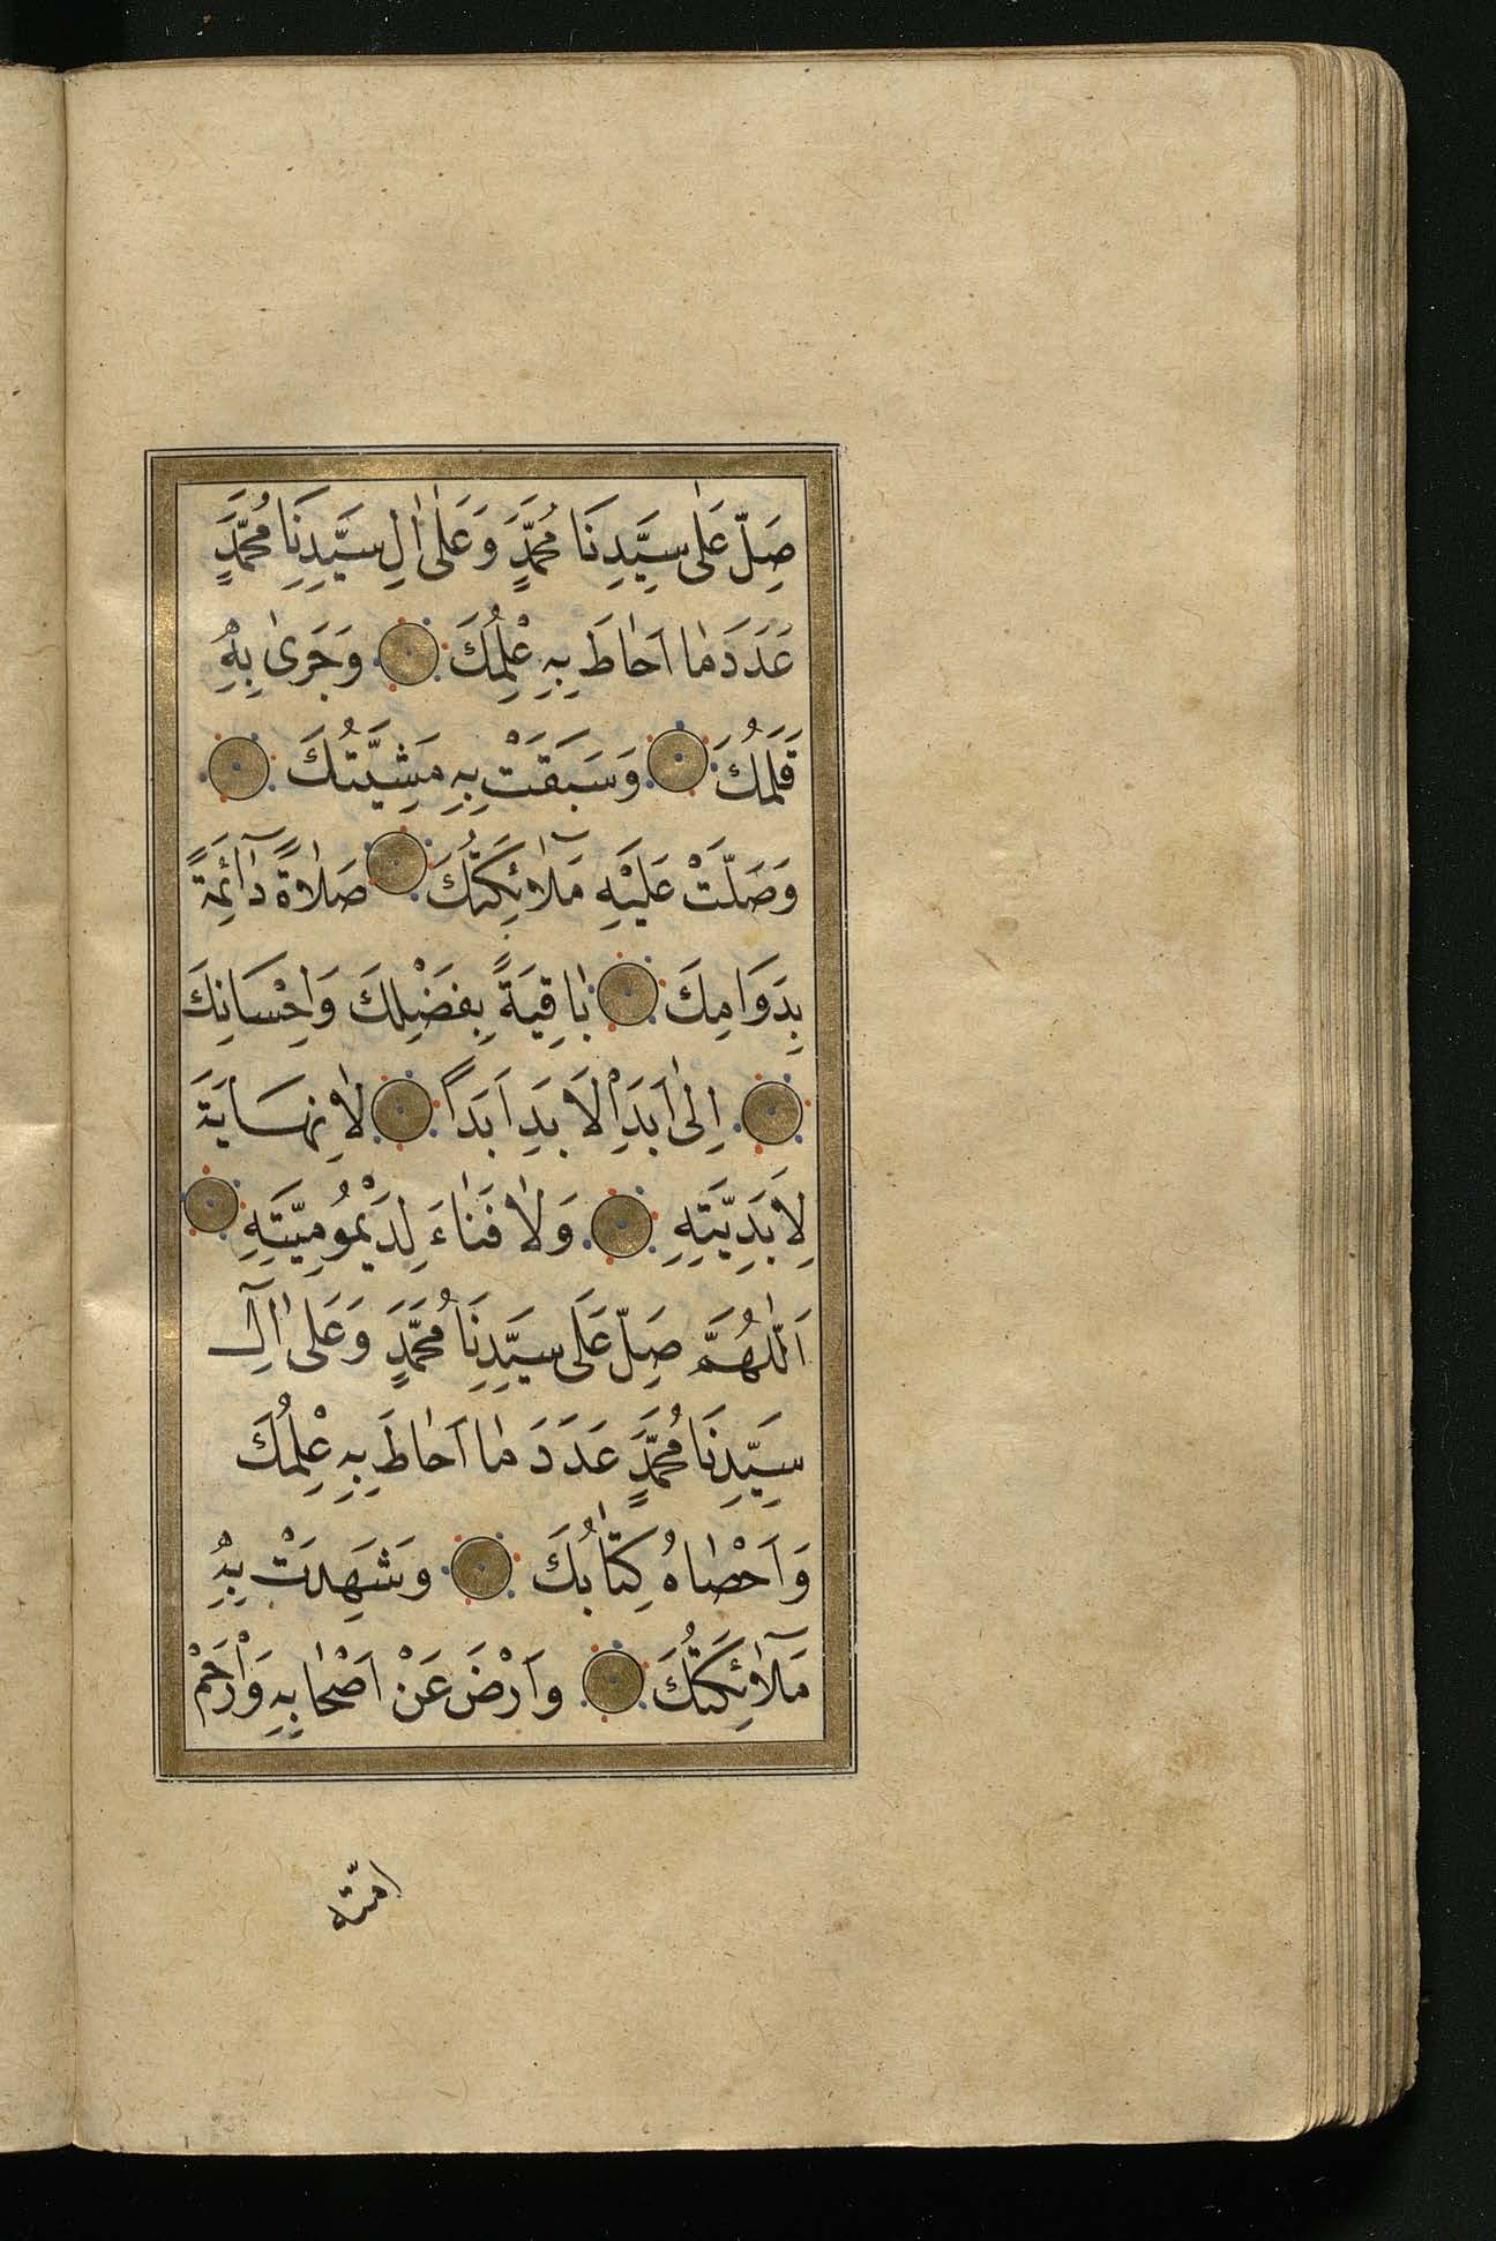 صَلِّ عَلٰى سَيِّدِنَا مُحَمَّدٍ وَعَلٰى اٰلِ سَيِّدِنَا مُحَمَّدٍ
عَدَدَ مٰا اَحٰاطَ بِهِ عِلْمُكَ وَجَرىٰ بِهِ
قَلَمُكَ وَسَبَقَتْ بِهِ مَشِيَّتُكَ
وَصَلَّتْ عَلَيْهِ مَلٰٓائِكَتُكَ صَلٰاةً دٰٓائِمَةً
بِدَوَامِكَ بٰاقِيَةً بِفَضْلِكَ وَاِحْسَانِكَ
اِلٰى اَبَدِ اْلاَبَدِ اَبَدًا لٰا نِهَايَةَ
لِاَبَدِيَّتِهِ وَلٰا فَنٰاءَ لِدَيْمُومِيَّتِهِ
اَللّٰهُمَّ صَلِّ عَلَى سَيِّدِنَا مُحَمَّدٍ وَعَلٰى اٰلِ
سَيِّدِنَا مُحَمَّدٍ عَدَدَ مٰا اَحٰاطَ بِهِ عِلْمُكَ
وَاَحْصٰاهُ كِتٰابُكَ وَشَهِدَتْ بِهِ
مَلٰٓائِكَتُكَ وَارْضَ عَنْ اَصْحٰابِهِ وَارْحَمْ
امّته